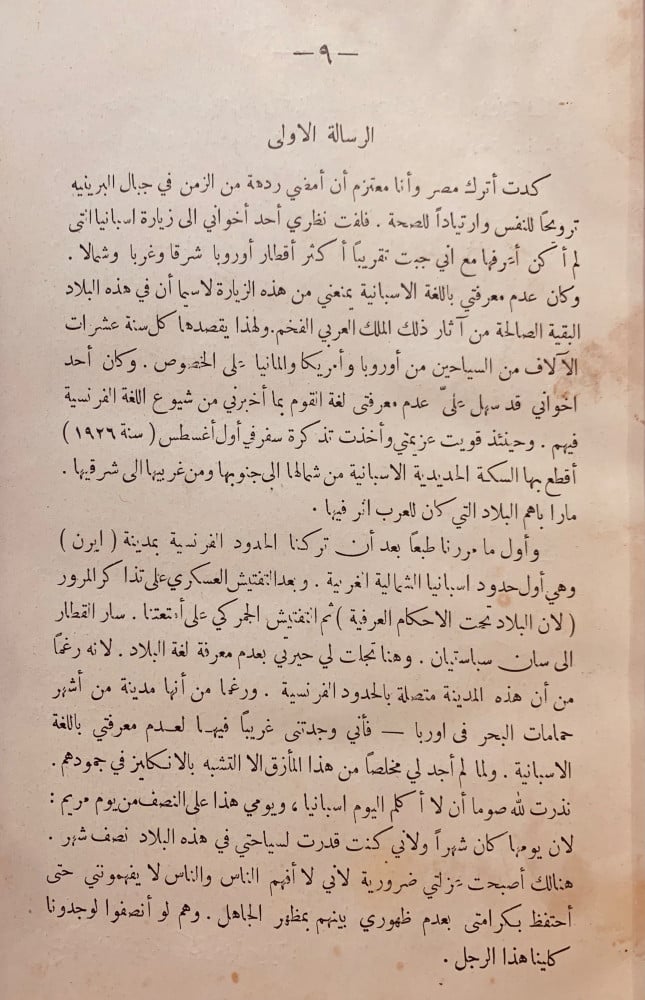 — ٩ —
الرسالة الاولى
كدت أترك مصر وأنا معتزم أن أمضي ردهة من الزمن في جبال البرينيه
ترويحًا للنفس وارتياداً للصحة . فلفت نظري أحد أخواني الى زيارة اسبانيا التى
لم أكن أعرفها مع اني جبت تقريباً أكثر أقطار أوروبا شرقا وغربا وشمالا .
وكان عدم معرفتي باللغة الاسبانية يمنعني من هذه الزيارة لاسيما أن في هذه البلاد
البقية الصالحة من آثار ذلك الملك العربي الفخم . ولهذا يقصدها كل سنة عشرات
الآلاف من السياحين من أوروبا وأمريكا والمانيا على الخصوص . وكان أحد
اخواني قد سهل علىّ عدم معرفتى لغة القوم بما أخبرني من شيوع اللغة الفرنسية
فيهم . وحينئذ قويت عزيمتي وأخذت تذكرة سفر في أول أغسطس ( سنة ١٩٢٦ )
أقطع بها السكة الحديدية الاسبانية من شمالها الى جنوبها ومن غربيها الى شرقيها .
مارا باهم البلاد التي كان للعرب اثر فيها .
وأول ما مررنا طبعًا بعد أن تركنا الحدود الفرنسية بمدينة ( ايرن )
وهي أول حدود اسبانيا الشمالية الغربية . وبعد التفتيش العسكري على تذاكر المرور
( لان البلاد تحت الاحكام العرفية ) ثم التفتيش الجمركي على أمتعتنا . سار القطار
الى سان سباستيان . وهنا تجلت لي حيرتي بعدم معرفة لغة البلاد . لانه رغمًا
من أن هذه المدينة متصلة بالحدود الفرنسية . ورغما من أنها مدينة من أشهر
حمامات البحر فى اوربا — فأني وجدتنى غريباً فيها لعدم معرفتي باللغة
الاسبانية . ولما لم أجد لي مخلصاً من هذا المأزق الا التشبه بالانكليز في جمودهم .
نذرت لله صوما أن لا أكلم اليوم اسبانيا ، ويومي هذا على النصف من يوم مريم :
لان يومها كان شهراً ولاني كنت قدرت لسياحتي في هذه البلاد نصف شهر .
هنالك أصبحت عزلتي ضرورية لاني لا أفهم الناس والناس لا يفهمونني حتى
أحتفظ بكرامتى بعدم ظهوري بينهم بمظهر الجاهل . وهم لو أنصفوا لوجدونا
كلينا هذا الرجل .